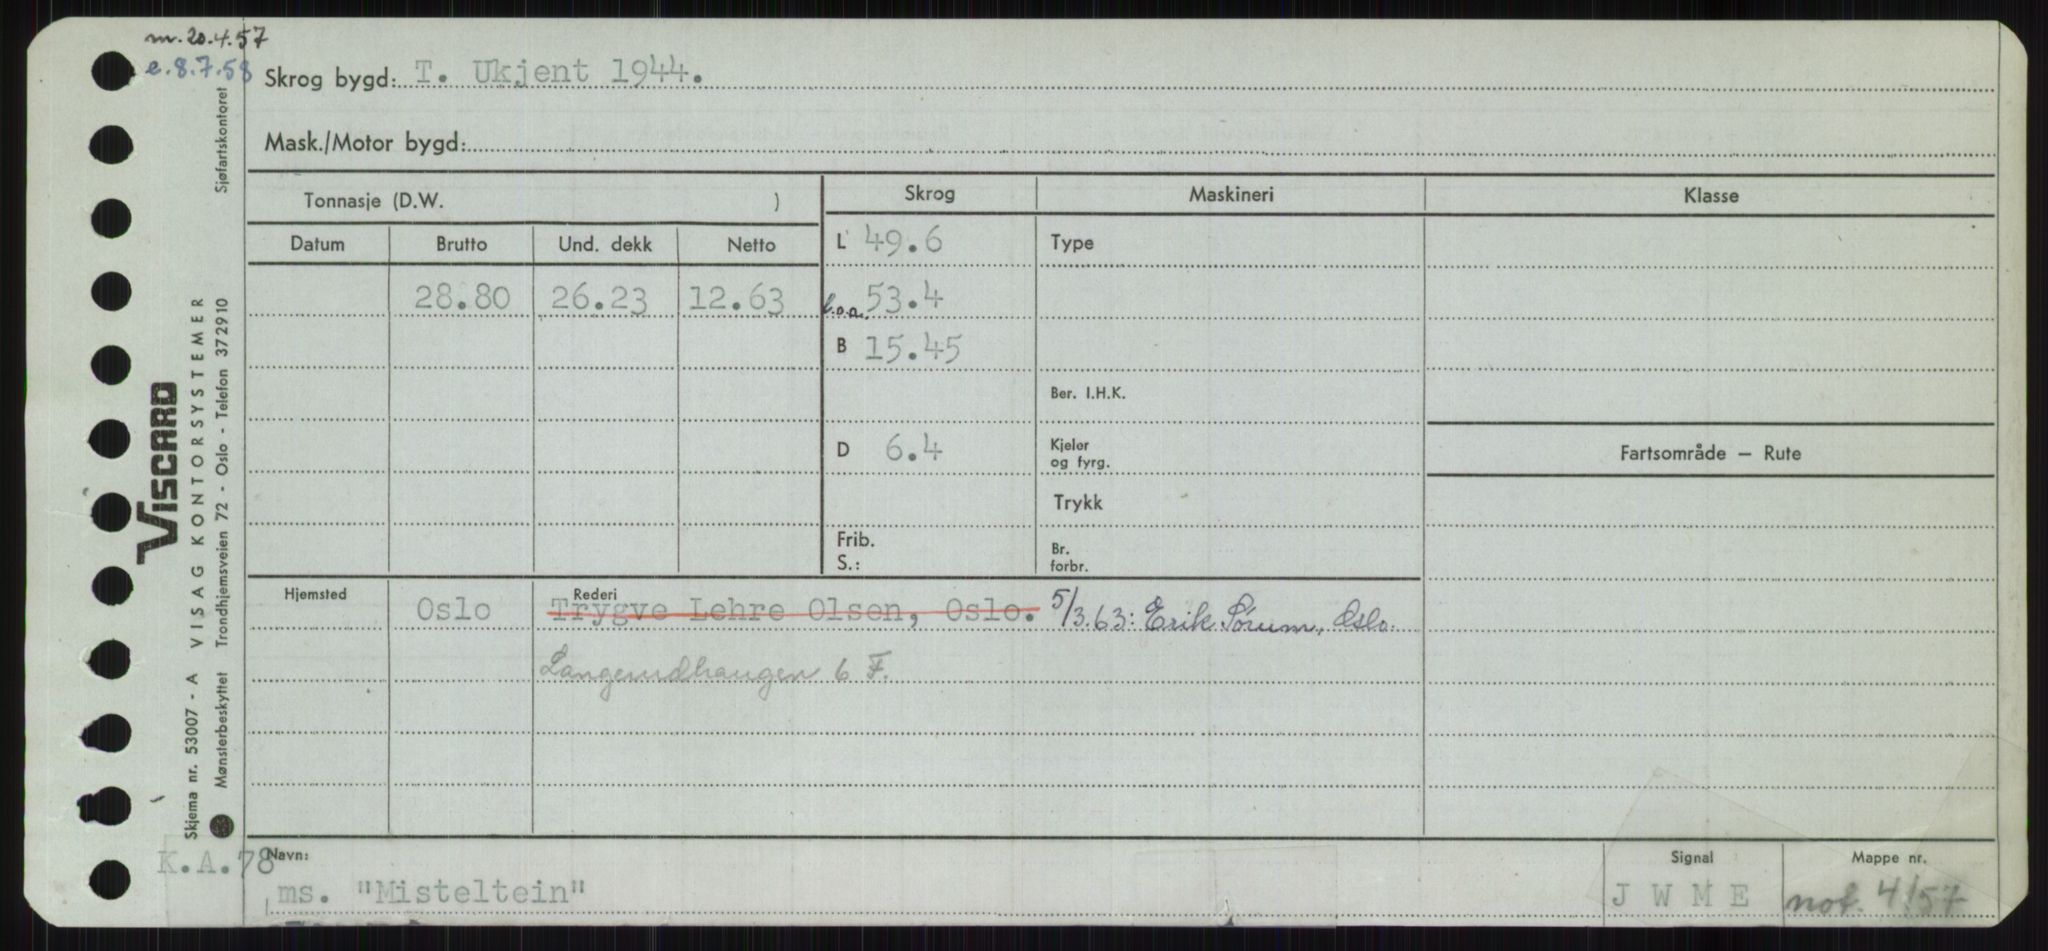 m. 20.4.57
e. 8.7.58
Skrog bygd: T. Ukjent 1944.
Mask./Motor bygd:
Tonnasje (D.W. )
Skrog
Maskineri
Klasse
Datum
Brutto
Und. dekk
Netto
L 49.6
Type
28.80
26.23
12.63
l.o.a. 53.4
B 15.45
Ber. I.H.K.
D 6.4
Kjeler
og fyrg.
Fartsområde — Rute
Trykk
Frib.
S.:
Br.
forbr.
Hjemsted
Oslo
Rederi
Trygve Lehre Olsen, Oslo.
5/3.63: Erik Sørum, Oslo.
Langerudhaugen 6 F.
Navn:
K.A.78
ms. "Misteltein"
Signal
J W M E
Mappe nr.
not. 4/57
VISCARD
VISAG KONTORSYSTEMER
Sjøfartskontoret
Trondhjemsveien 72 - Oslo - Telefon 372910
Skjema nr. 53007 - A
Mønsterbeskyttet